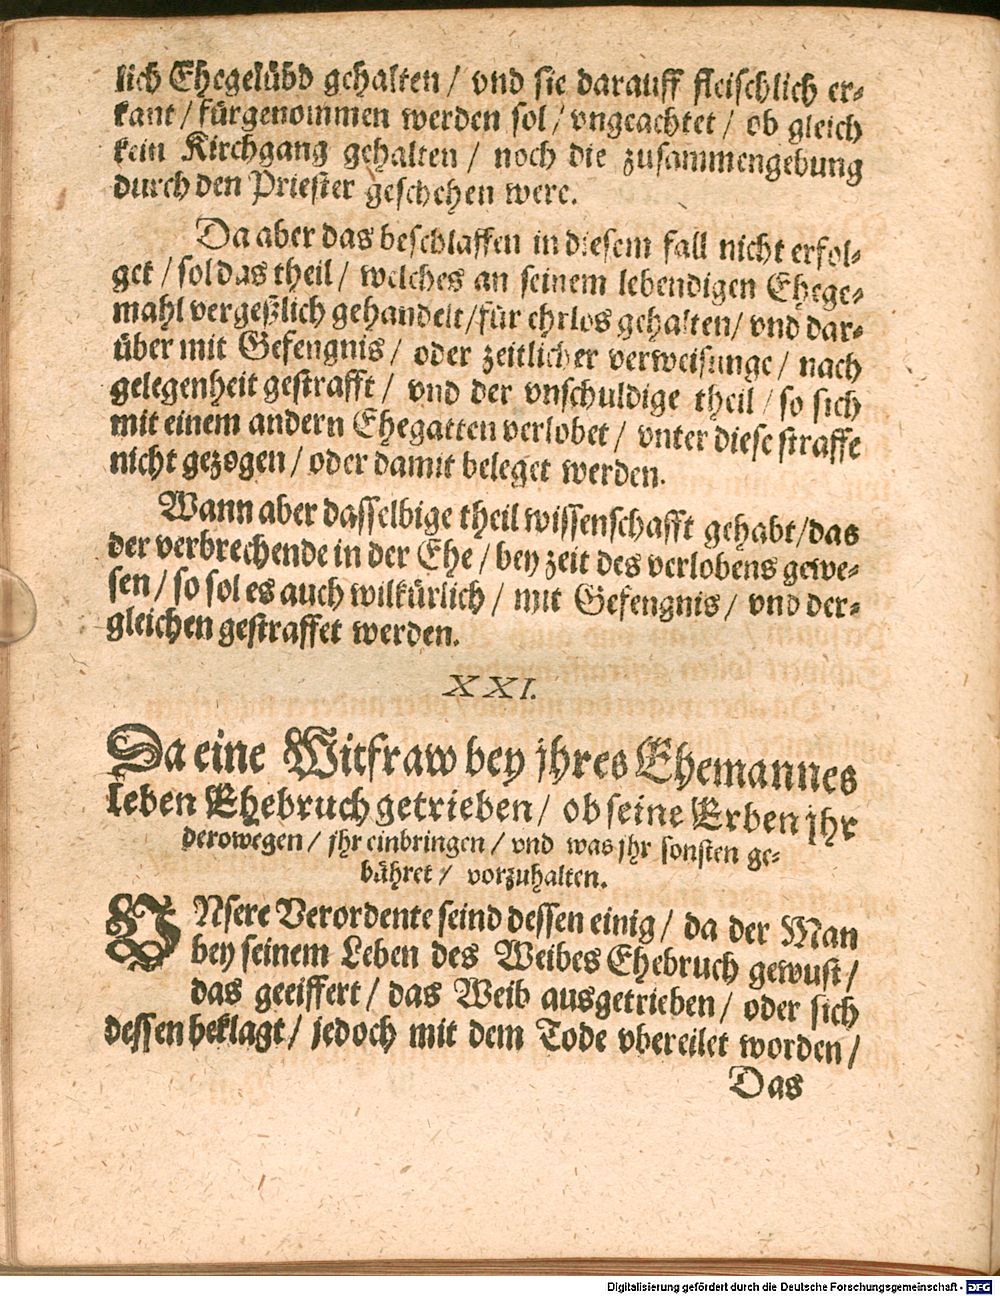 lich Ehegelübd gehalten / vnd sie darauff fleischlich er⸗
kant / fürgenommen werden sol / vngeachtet / ob gleich
kein Kirchgang gehalten / noch die zusammengebung
durch den Priester geschehen were.
Da aber das beschlaffen in diesem fall nicht erfol⸗
get / sol das theil / welches an seinem lebendigen Ehege⸗
mahl vergeßlich gehandelt / für ehrlos gehalten / vnd dar⸗
über mit Gefengnis / oder zeitlicher verweisunge / nach
gelegenheit gestrafft / vnd der vnschuldige theil / so sich
mit einem andern Ehegatten verlobet / vnter diese straffe
nicht gezogen / oder damit beleget werden.
Wann aber dasselbige theil wissenschafft gehabt / das
der verbrechende in der Ehe / bey zeit des verlobens gewe⸗
sen / so sol es auch wilkürlich / mit Gefengnis / vnd der⸗
gleichen gestraffet werden.
XXI.
Da eine Witfraw bey jhres Ehemannes
leben Ehebruch getrieben / ob seine Erben jhr
derowegen / jhr einbringen / vnd was jhr sonsten ge⸗
bühret / vorzuhalten.
VNsere Verordente seind dessen einig / da der Man
bey seinem Leben des Weibes Ehebruch gewust /
das geeiffert / das Weib ausgetrieben / oder sich
dessen beklagt / jedoch mit dem Tode vbereilet worden /
Das
Digitalisierung gefördert durch die Deutsche Forschungsgemeinschaft - DFG